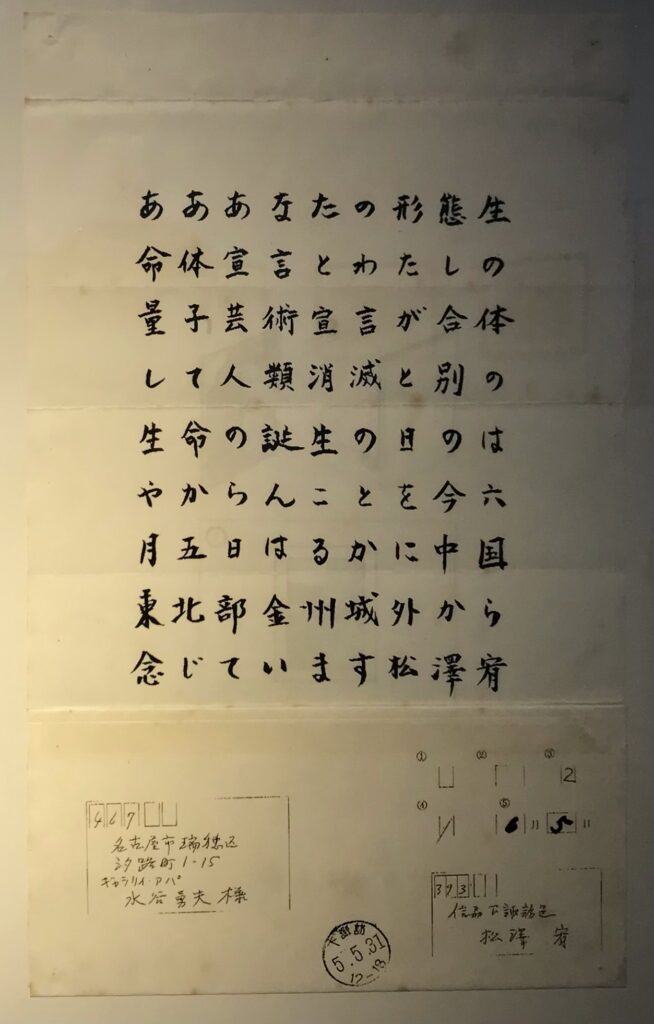 あああなたの形態生
命体宣言とわたしの
量子芸術宣言が合体
して人類消滅と別の
生命の誕生の日のは
やからんことを今六
月五日はるかに中国
東北部金州城外から
念じています松澤宥
① ② ③
2
④ ⑤
6 5
467
名古屋市瑞穂区
汐路町1-15
ギャラリィ・アパ
水谷勇夫様
393
下諏訪
松澤宥
下諏訪
5.5.31
12-18